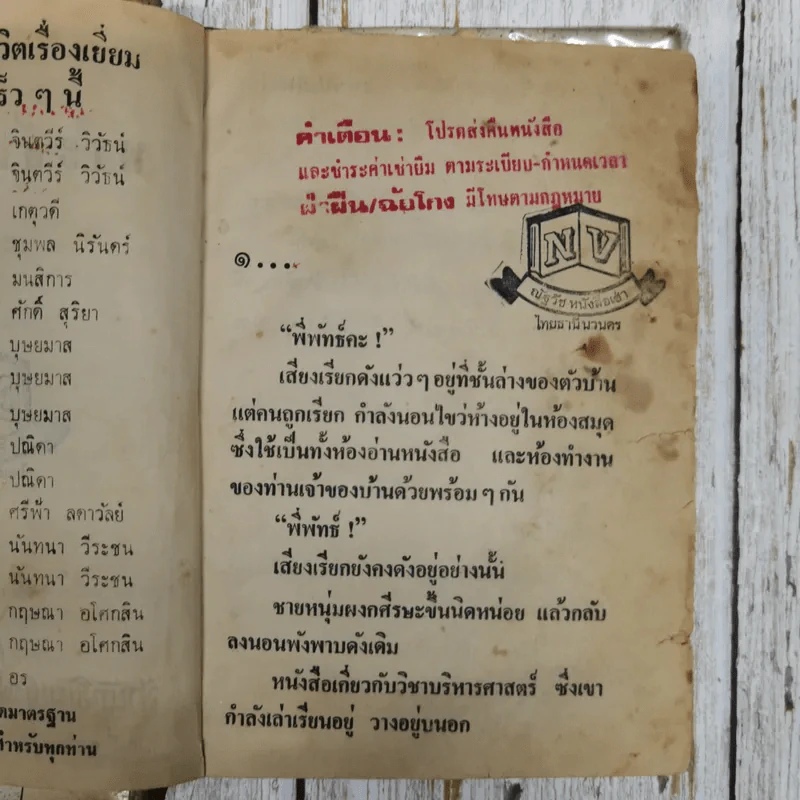 วิตเรื่องเยี่ยม
ร็ว ๆ นี้
จินตวีร์ วิวัธน์
จินตวีร์ วิวัธน์
เกตุวดี
ชุมพล นิรันดร์
มนสิการ
ศักดิ์ สุริยา
บุษยมาส
บุษยมาส
บุษยมาส
ปณิตา
ปณิตา
ศรีฟ้า ลดาวัลย์
นันทนา วีระชน
นันทนา วีระชน
กฤษณา อโศกสิน
กฤษณา อโศกสิน
อร
ตมาตรฐาน
สำหรับทุกท่าน
คำเตือน : โปรดส่งคืนหนังสือ
และชำระค่าเช่ายืม ตามระเบียบ-กำหนดเวลา
ฝ่าฝืน/ฉ้อโกง มีโทษตามกฎหมาย
NV
ณัฐวัช หนังสือเช่า
ไทยธานี นวนคร
๑...
“พี่พัทธ์คะ !”
เสียงเรียกดังแว่ว ๆ อยู่ที่ชั้นล่างของตัวบ้าน
แต่คนถูกเรียก กำลังนอนไขว่ห้างอยู่ในห้องสมุด
ซึ่งใช้เป็นทั้งห้องอ่านหนังสือ และห้องทำงาน
ของท่านเจ้าของบ้านด้วยพร้อม ๆ กัน
“พี่พัทธ์ !”
เสียงเรียกยังคงดังอยู่อย่างนั้น
ชายหนุ่มผงกศีรษะขึ้นนิดหน่อย แล้วกลับ
ลงนอนพังพาบดังเดิม
หนังสือเกี่ยวกับวิชาบริหารศาสตร์ ซึ่งเขา
กำลังเล่าเรียนอยู่ วางอยู่บนอก